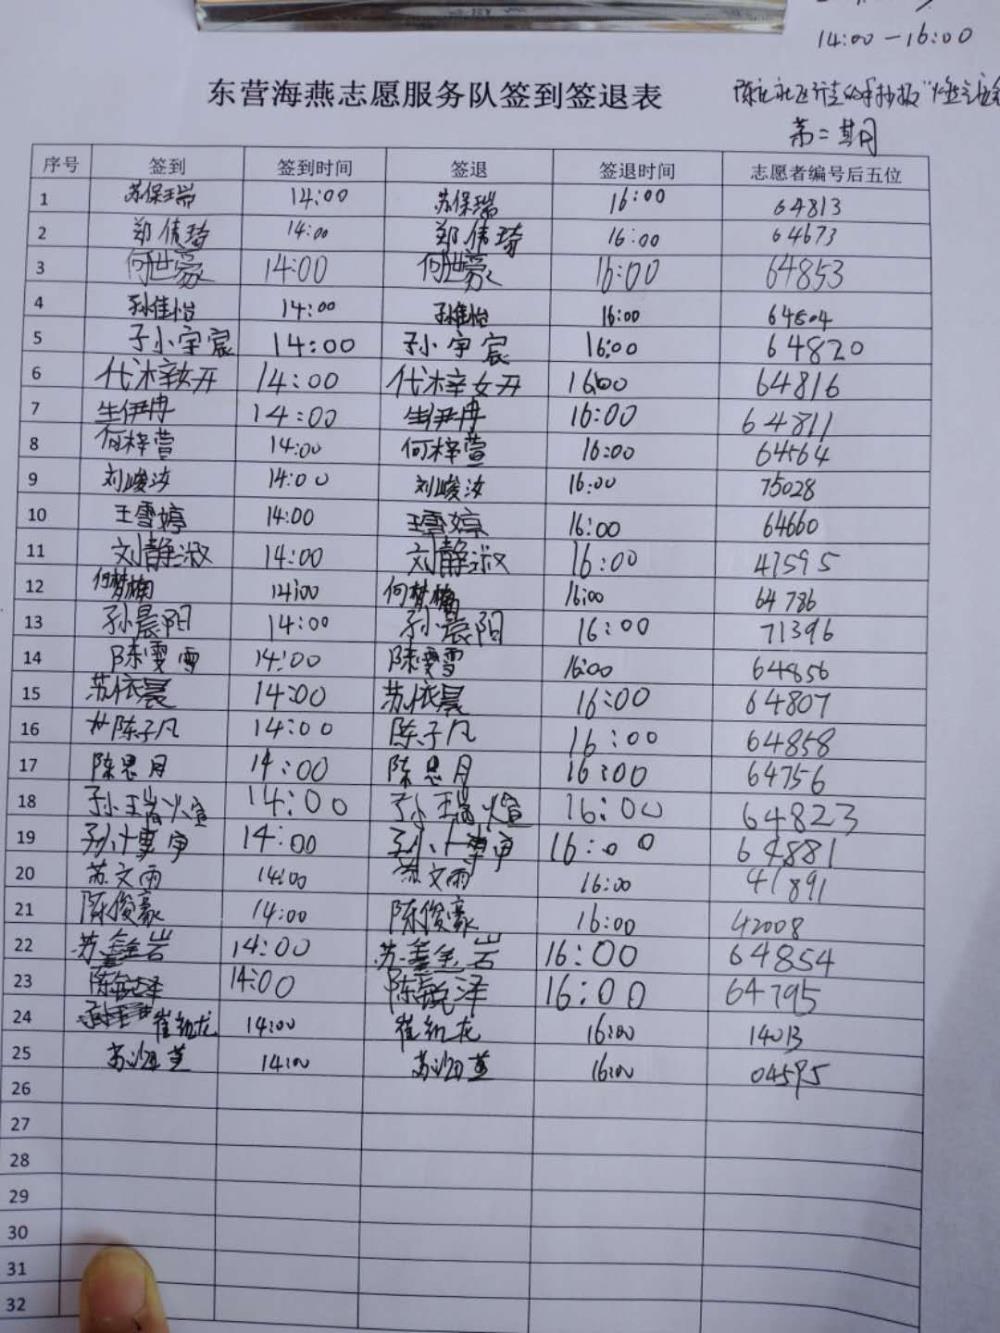 14:00-16:00
东营海燕志愿服务队签到签退表
第二期
序号 签到 签到时间 签退 签退时间 志愿者编号后五位
1 苏保瑞 14:00 苏保瑞 16:00 64813
2 郑倩琦 14:00 郑倩琦 16:00 64673
3 何世豪 14:00 何世豪 16:00 64853
4 孙佳怡 14:00 孙佳怡 16:00 64804
5 孙宇宸 14:00 孙宇宸 16:00 64820
6 代梓妍 14:00 代梓妍 16:00 64816
7 生伊冉 14:00 生伊冉 16:00 64811
8 何梓萱 14:00 何梓萱 16:00 64564
9 刘峻汝 14:00 刘峻汝 16:00 75028
10 王雪婷 14:00 王雪婷 16:00 64660
11 刘静淑 14:00 刘静淑 16:00 41595
12 何梦楠 14:00 何梦楠 16:00 64786
13 孙晨阳 14:00 孙晨阳 16:00 71396
14 陈雯雪 14:00 陈雯雪 16:00 64856
15 苏依晨 14:00 苏依晨 16:00 64807
16 陈子凡 14:00 陈子凡 16:00 64858
17 陈思月 14:00 陈思月 16:00 64756
18 孙瑞煊 14:00 孙瑞煊 16:00 64823
19 14:00 16:00 64881
20 苏文雨 14:00 苏文雨 16:00 41891
21 陈俊豪 14:00 陈俊豪 16:00 42008
22 苏鑫岩 14:00 苏鑫岩 16:00 64854
23 陈锐泽 14:00 陈锐泽 16:00 64795
24 14:00 16:00 14013
25 14:00 16:00 04595
26
27
28
29
30
31
32